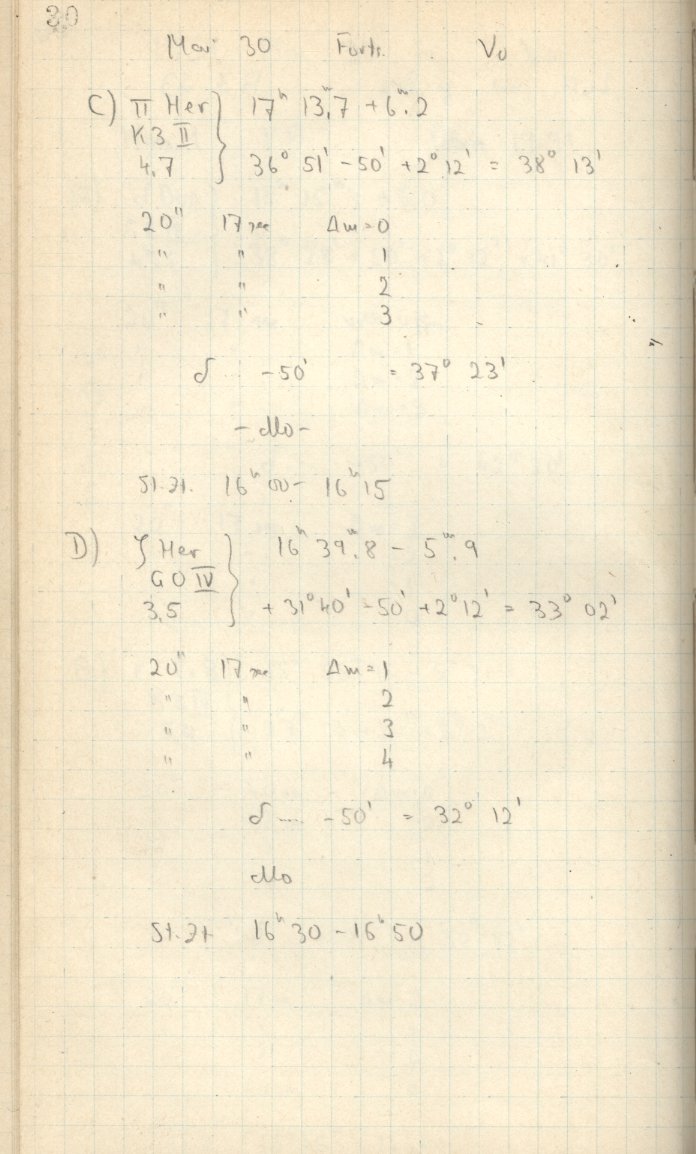 30
Mai 30 Forts. Vo
C) π Her } 17ʰ 13ᵐ.7 + 6ᵐ.2
K3 II
4.7 36° 51' - 50' + 2° 12' = 38° 13'
20" 17 sec Δm = 0
" " 1
" " 2
" " 3
δ ... - 50' = 37° 23'
- do -
St. Zt. 16ʰ 00 - 16ʰ 15
D) ζ Her } 16ʰ 39ᵐ.8 - 5ᵐ.9
G0 IV
3.5 + 31° 40' - 50' + 2° 12' = 33° 02'
20" 17 sec Δm = 1
" " 2
" " 3
" " 4
δ .... - 50' = 32° 12'
St. Zt 16ʰ 30 - 16ʰ 50